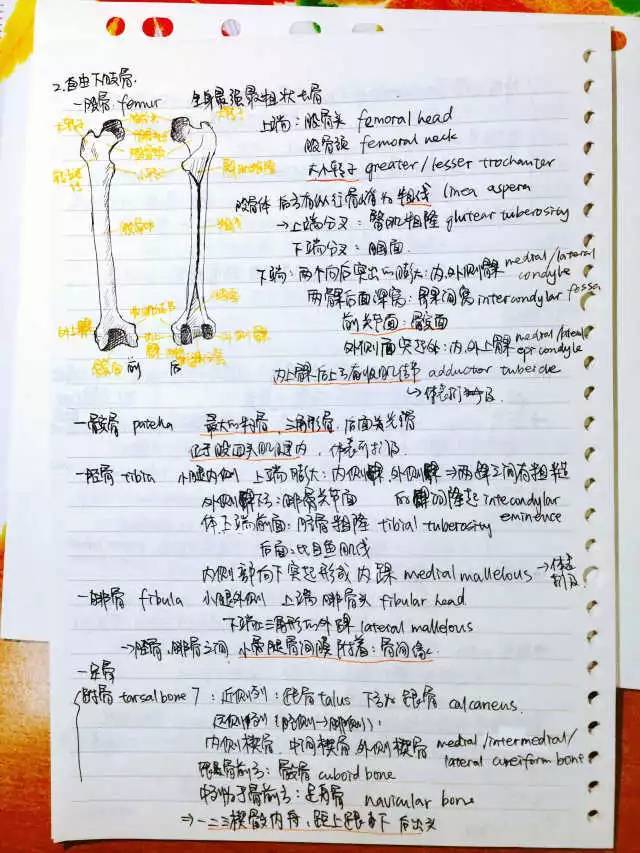 2.自由下肢骨.
一股骨 femur 全身最强最粗状长骨
上端：股骨头 femoral head
股骨颈 femoral neck
大小转子 greater/lesser trochanter
股骨体 后方有纵行骨嵴为粗线 linea aspera
→上端分叉：臀肌粗隆 glutear tuberosity
下端分叉：腘面.
下端：两个向后突出的膨大：内.外侧髁 medial/lateral condyle
两髁后面深窝：髁间窝 intercondylar fossa
前关节面：髌面
外侧面突起处：内.外上髁 medial/lateral epicondyle
内上髁后上方有收肌结节 adductor tubercle
↳体表可扪及
前 后
一髌骨 patella 最大的籽骨，三角形骨，后面为光滑
位于股四头肌腱内，体表可扪及.
一胫骨 tibia 小腿内侧 上端膨大：内侧髁，外侧髁→两髁之间有粗糙
外侧髁下：腓骨关节面 的髁间隆起 intecondylar eminence
体上端前面：胫骨粗隆 tibial tuberosity
后面：比目鱼肌线
内侧部向下突起形成 内踝 medial malleolous →体表扪及
一腓骨 fibula 小腿外侧 上端 腓骨头 fibular head
下端为三角形的外踝 lateral malleolous
→胫骨.腓骨之间 小腿骨间膜附着：骨间缘.
一足骨
跗骨 tarsal bone 7：近侧列：距骨 talus 下方为跟骨 calcaneus.
远侧列（胫侧→腓侧）：
内侧楔骨.中间楔骨 外侧楔骨 medial/intermedial/lateral cuneiform bone
跟骨前方：骰骨 cuboid bone
距骨前方：足舟骨 navicular bone
⇒一二三楔骰内舟，距上跟下后出头